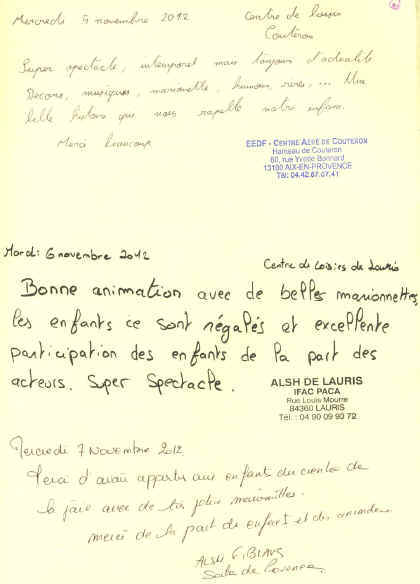 Mercredi 5 novembre 2012
Centre de loisirs
Couteron
Super spectacle, intemporel mais toujours d'actualité
Décors, musiques, marionnette, humour, rires, ... Une
belle histoire que nous rapelle notre enfance.
Merci beaucoup
EEDF - CENTRE AERE DE COUTERON
Hameau de Couteron
60, rue Yvette Bonnard
13100 AIX-EN-PROVENCE
Tél: 04.42.67.07.41
Mardi 6 novembre 2012
Centre de loisirs de Lauris
Bonne animation avec de belles marionnettes
les enfants ce sont régalés et excellente
participation des enfants de la part des
acteurs. Super Spectacle.
ALSH DE LAURIS
IFAC PACA
Rue Louis Mourre
84360 LAURIS
Tél. : 04 90 09 90 72
Mercredi 7 Novembre 2012
Merci d'avoir apporter aux enfants du centre de
la joie avec de très jolies marionnettes.
merci de la part de enfant et des
ALSH